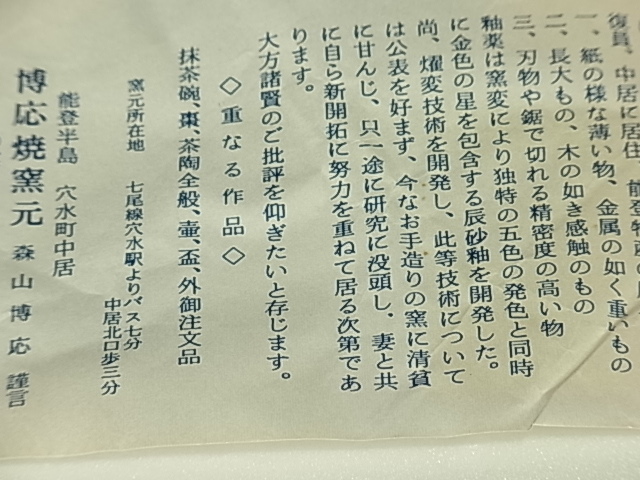 復員、中居に居住、能登特産
一、紙の様な薄い物、金属の如く重いもの
二、長大もの、木の如き感触のもの
三、刃物や鋸で切れる精密度の高い物
釉薬は窯変により独特の五色の発色と同時
に金色の星を包含する辰砂釉を開発した。
尚、燿変技術を開発し、此等技術について
は公表を好まず、今なお手造りの窯に清貧
に甘んじ、只一途に研究に没頭し、妻と共
に自ら新開拓に努力を重ねて居る次第であ
ります。
大方諸賢のご批評を仰ぎたいと存じます。
◇重なる作品◇
抹茶碗、棗、茶陶全般、壷、盃、外御注文品
窯元所在地 七尾線穴水駅よりバス七分
中居北口歩三分
能登半島 穴水町中居
博応焼窯元 森山博応 謹言